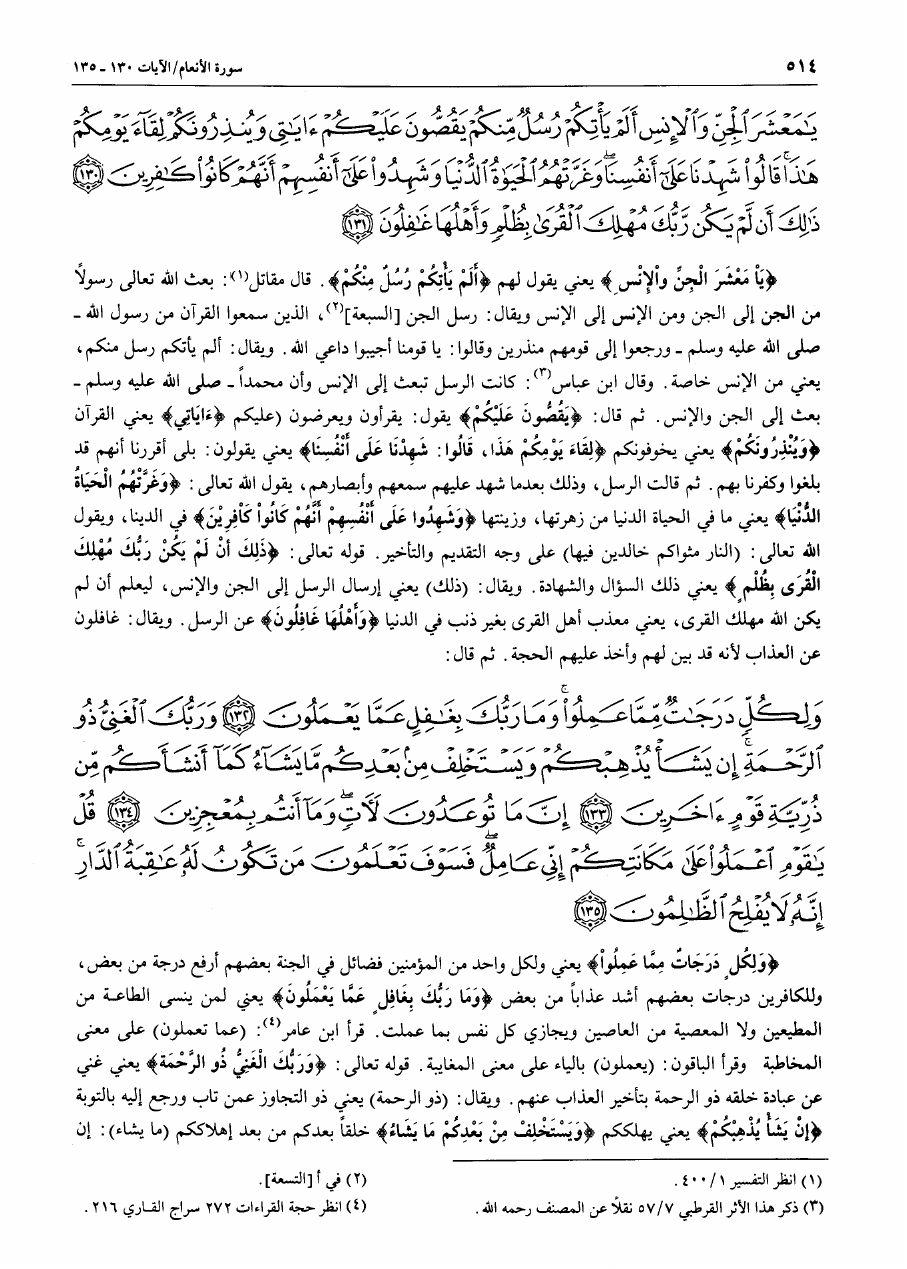 ٥١٤ سورة الأنعام/الآيات ١٣٠ ـ ١٣٥
يَـٰمَعْشَرَ ٱلْجِنِّ وَٱلْإِنسِ أَلَمْ يَأْتِكُمْ رُسُلٌ مِّنكُمْ يَقُصُّونَ عَلَيْكُمْ ءَايَـٰتِى وَيُنذِرُونَكُمْ لِقَآءَ يَوْمِكُمْ
هَـٰذَا ۚ قَالُوا۟ شَهِدْنَا عَلَىٰٓ أَنفُسِنَا ۖ وَغَرَّتْهُمُ ٱلْحَيَوٰةُ ٱلدُّنْيَا وَشَهِدُوا۟ عَلَىٰٓ أَنفُسِهِمْ أَنَّهُمْ كَانُوا۟ كَـٰفِرِينَ ﴿١٣٠﴾
ذَٰلِكَ أَن لَّمْ يَكُن رَّبُّكَ مُهْلِكَ ٱلْقُرَىٰ بِظُلْمٍ وَأَهْلُهَا غَـٰفِلُونَ ﴿١٣١﴾
﴿يَا مَعْشَرَ الْجِنِّ وَالْإِنْسِ﴾ يعني يقول لهم ﴿أَلَمْ يَأْتِكُمْ رُسُلٌ مِنْكُمْ﴾. قال مقاتل(١): بعث الله تعالى رسولاً
من الجن إلى الجن ومن الإنس إلى الإنس ويقال: رسل الجن [السبعة](٢)، الذين سمعوا القرآن من رسول الله ـ
صلى الله عليه وسلم ـ ورجعوا إلى قومهم منذرين وقالوا: يا قومنا أجيبوا داعي الله. ويقال: ألم يأتكم رسل منكم،
يعني من الإنس خاصة. وقال ابن عباس(٣): كانت الرسل تبعث إلى الإنس وأن محمداً ـ صلى الله عليه وسلم ـ
بعث إلى الجن والإنس. ثم قال: ﴿يَقُصُّونَ عَلَيْكُمْ﴾ يقول: يقرأون ويعرضون (عليكم ﴿ءَايَاتِي﴾ يعني القرآن
﴿وَيُنْذِرُونَكُمْ﴾ يعني يخوفونكم ﴿لِقَاءَ يَوْمِكُمْ هَذَا، قَالُوا: شَهِدْنَا عَلَى أَنْفُسِنَا﴾ يعني يقولون: بلى أقررنا أنهم قد
بلغوا وكفرنا بهم. ثم قالت الرسل، وذلك بعدما شهد عليهم سمعهم وأبصارهم، يقول الله تعالى: ﴿وَغَرَّتْهُمُ الْحَيَاةُ
الدُّنْيَا﴾ يعني ما في الحياة الدنيا من زهرتها، وزينتها ﴿وَشَهِدُوا عَلَى أَنْفُسِهِمْ أَنَّهُمْ كَانُوا كَافِرِيْنَ﴾ في الدينا، ويقول
الله تعالى: (النار مثواكم خالدين فيها) على وجه التقديم والتأخير. قوله تعالى: ﴿ذَلِكَ أَنْ لَمْ يَكُنْ رَبُّكَ مُهْلِكَ
الْقُرَى بِظُلْمٍ﴾ يعني ذلك السؤال والشهادة. ويقال: (ذلك) يعني إرسال الرسل إلى الجن والإنس، ليعلم أن لم
يكن الله مهلك القرى، يعني معذب أهل القرى بغير ذنب في الدنيا ﴿وَأَهْلُهَا غَافِلُونَ﴾ عن الرسل. ويقال: غافلون
عن العذاب لأنه قد بين لهم وأخذ عليهم الحجة. ثم قال:
وَلِكُلٍّ دَرَجَـٰتٌ مِّمَّا عَمِلُوا۟ ۚ وَمَا رَبُّكَ بِغَـٰفِلٍ عَمَّا يَعْمَلُونَ ﴿١٣٢﴾ وَرَبُّكَ ٱلْغَنِىُّ ذُو
ٱلرَّحْمَةِ ۚ إِن يَشَأْ يُذْهِبْكُمْ وَيَسْتَخْلِفْ مِنۢ بَعْدِكُم مَّا يَشَآءُ كَمَآ أَنشَأَكُم مِّن
ذُرِّيَّةِ قَوْمٍ ءَاخَرِينَ ﴿١٣٣﴾ إِنَّ مَا تُوعَدُونَ لَـَٔاتٍ ۖ وَمَآ أَنتُم بِمُعْجِزِينَ ﴿١٣٤﴾ قُلْ
يَـٰقَوْمِ ٱعْمَلُوا۟ عَلَىٰ مَكَانَتِكُمْ إِنِّى عَامِلٌ ۖ فَسَوْفَ تَعْلَمُونَ مَن تَكُونُ لَهُۥ عَـٰقِبَةُ ٱلدَّارِ ۗ
إِنَّهُۥ لَا يُفْلِحُ ٱلظَّـٰلِمُونَ ﴿١٣٥﴾
﴿وَلِكُلٍ دَرَجَاتٌ مِمَّا عَمِلُوا﴾ يعني ولكل واحد من المؤمنين فضائل في الجنة بعضهم أرفع درجة من بعض،
وللكافرين درجات بعضهم أشد عذاباً من بعض ﴿وَمَا رَبُّكَ بِغَافِلٍ عَمَّا يَعْمَلُونَ﴾ يعني لمن ينسى الطاعة من
المطيعين ولا المعصية من العاصين ويجازي كل نفس بما عملت. قرأ ابن عامر(٤): (عما تعملون) على معنى
المخاطبة وقرأ الباقون: (يعملون) بالياء على معنى المغايبة. قوله تعالى: ﴿وَرَبُّكَ الْغَنِيُّ ذُو الرَّحْمَةِ﴾ يعني غني
عن عبادة خلقه ذو الرحمة بتأخير العذاب عنهم. ويقال: (ذو الرحمة) يعني ذو التجاوز عمن تاب ورجع إليه بالتوبة
﴿إِنْ يَشَأْ يُذْهِبْكُمْ﴾ يعني يهلككم ﴿وَيَسْتَخْلِفْ مِنْ بَعْدِكُمْ مَا يَشَاءُ﴾ خلقاً بعدكم من بعد إهلاككم (ما يشاء): إن
(١) انظر التفسير ٤٠٠/١. (٢) في أ [التسعة].
(٣) ذكر هذا الأثر القرطبي ٥٧/٧ نقلاً عن المصنف رحمه الله. (٤) انظر حجة القراءات ٢٧٢ سراج القاري ٢١٦.